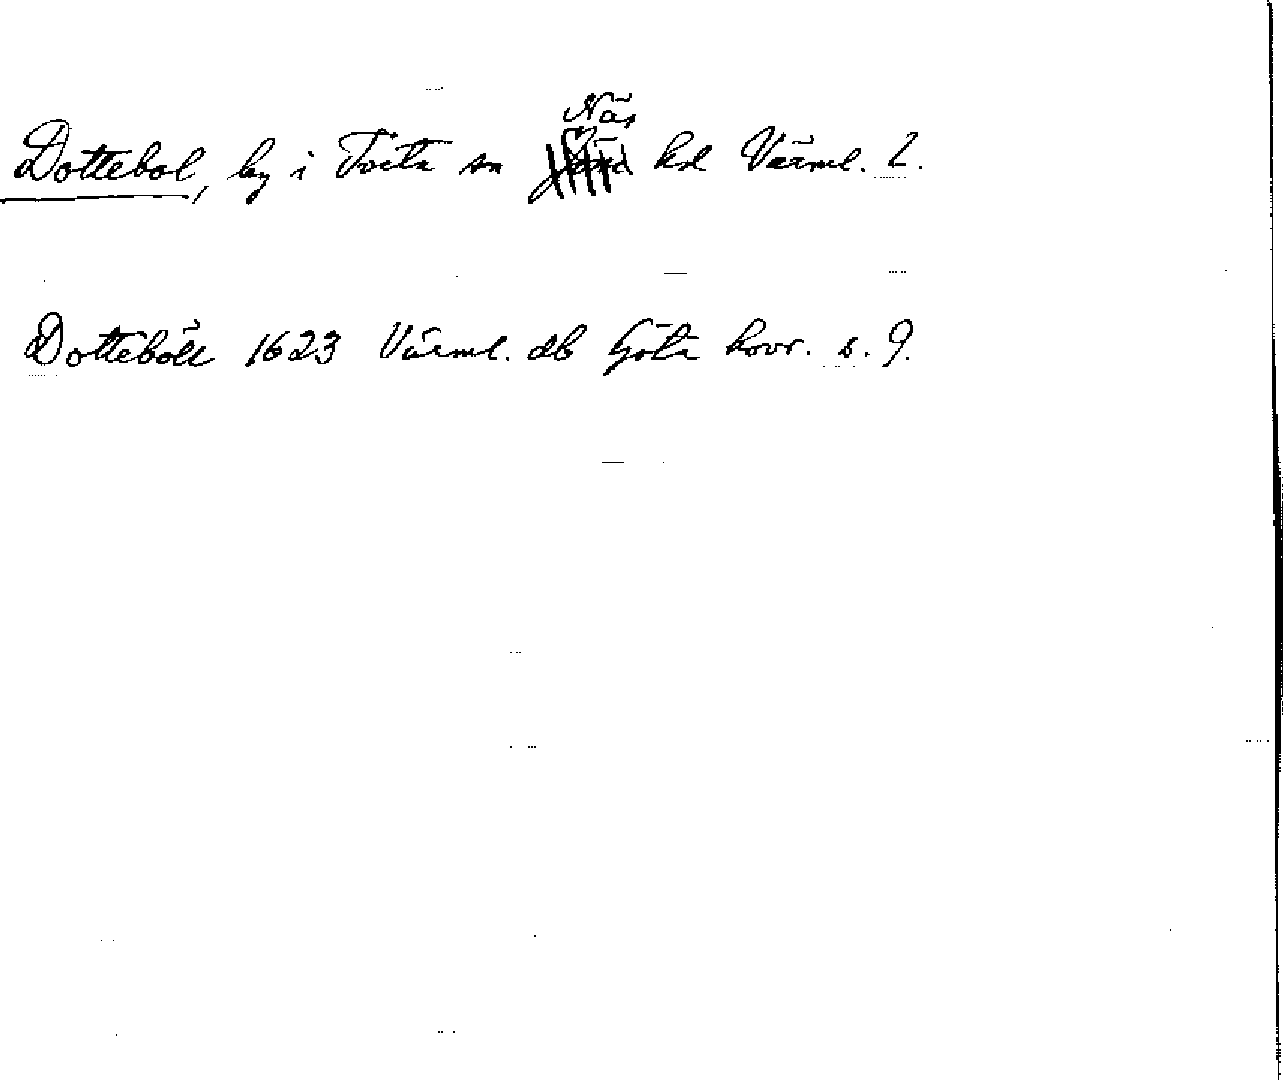 Näs
Dottebol, by i Tveta sn hd Värml. l.
Dotteböll 1623 Värml. db Göta hovr. s. 9.